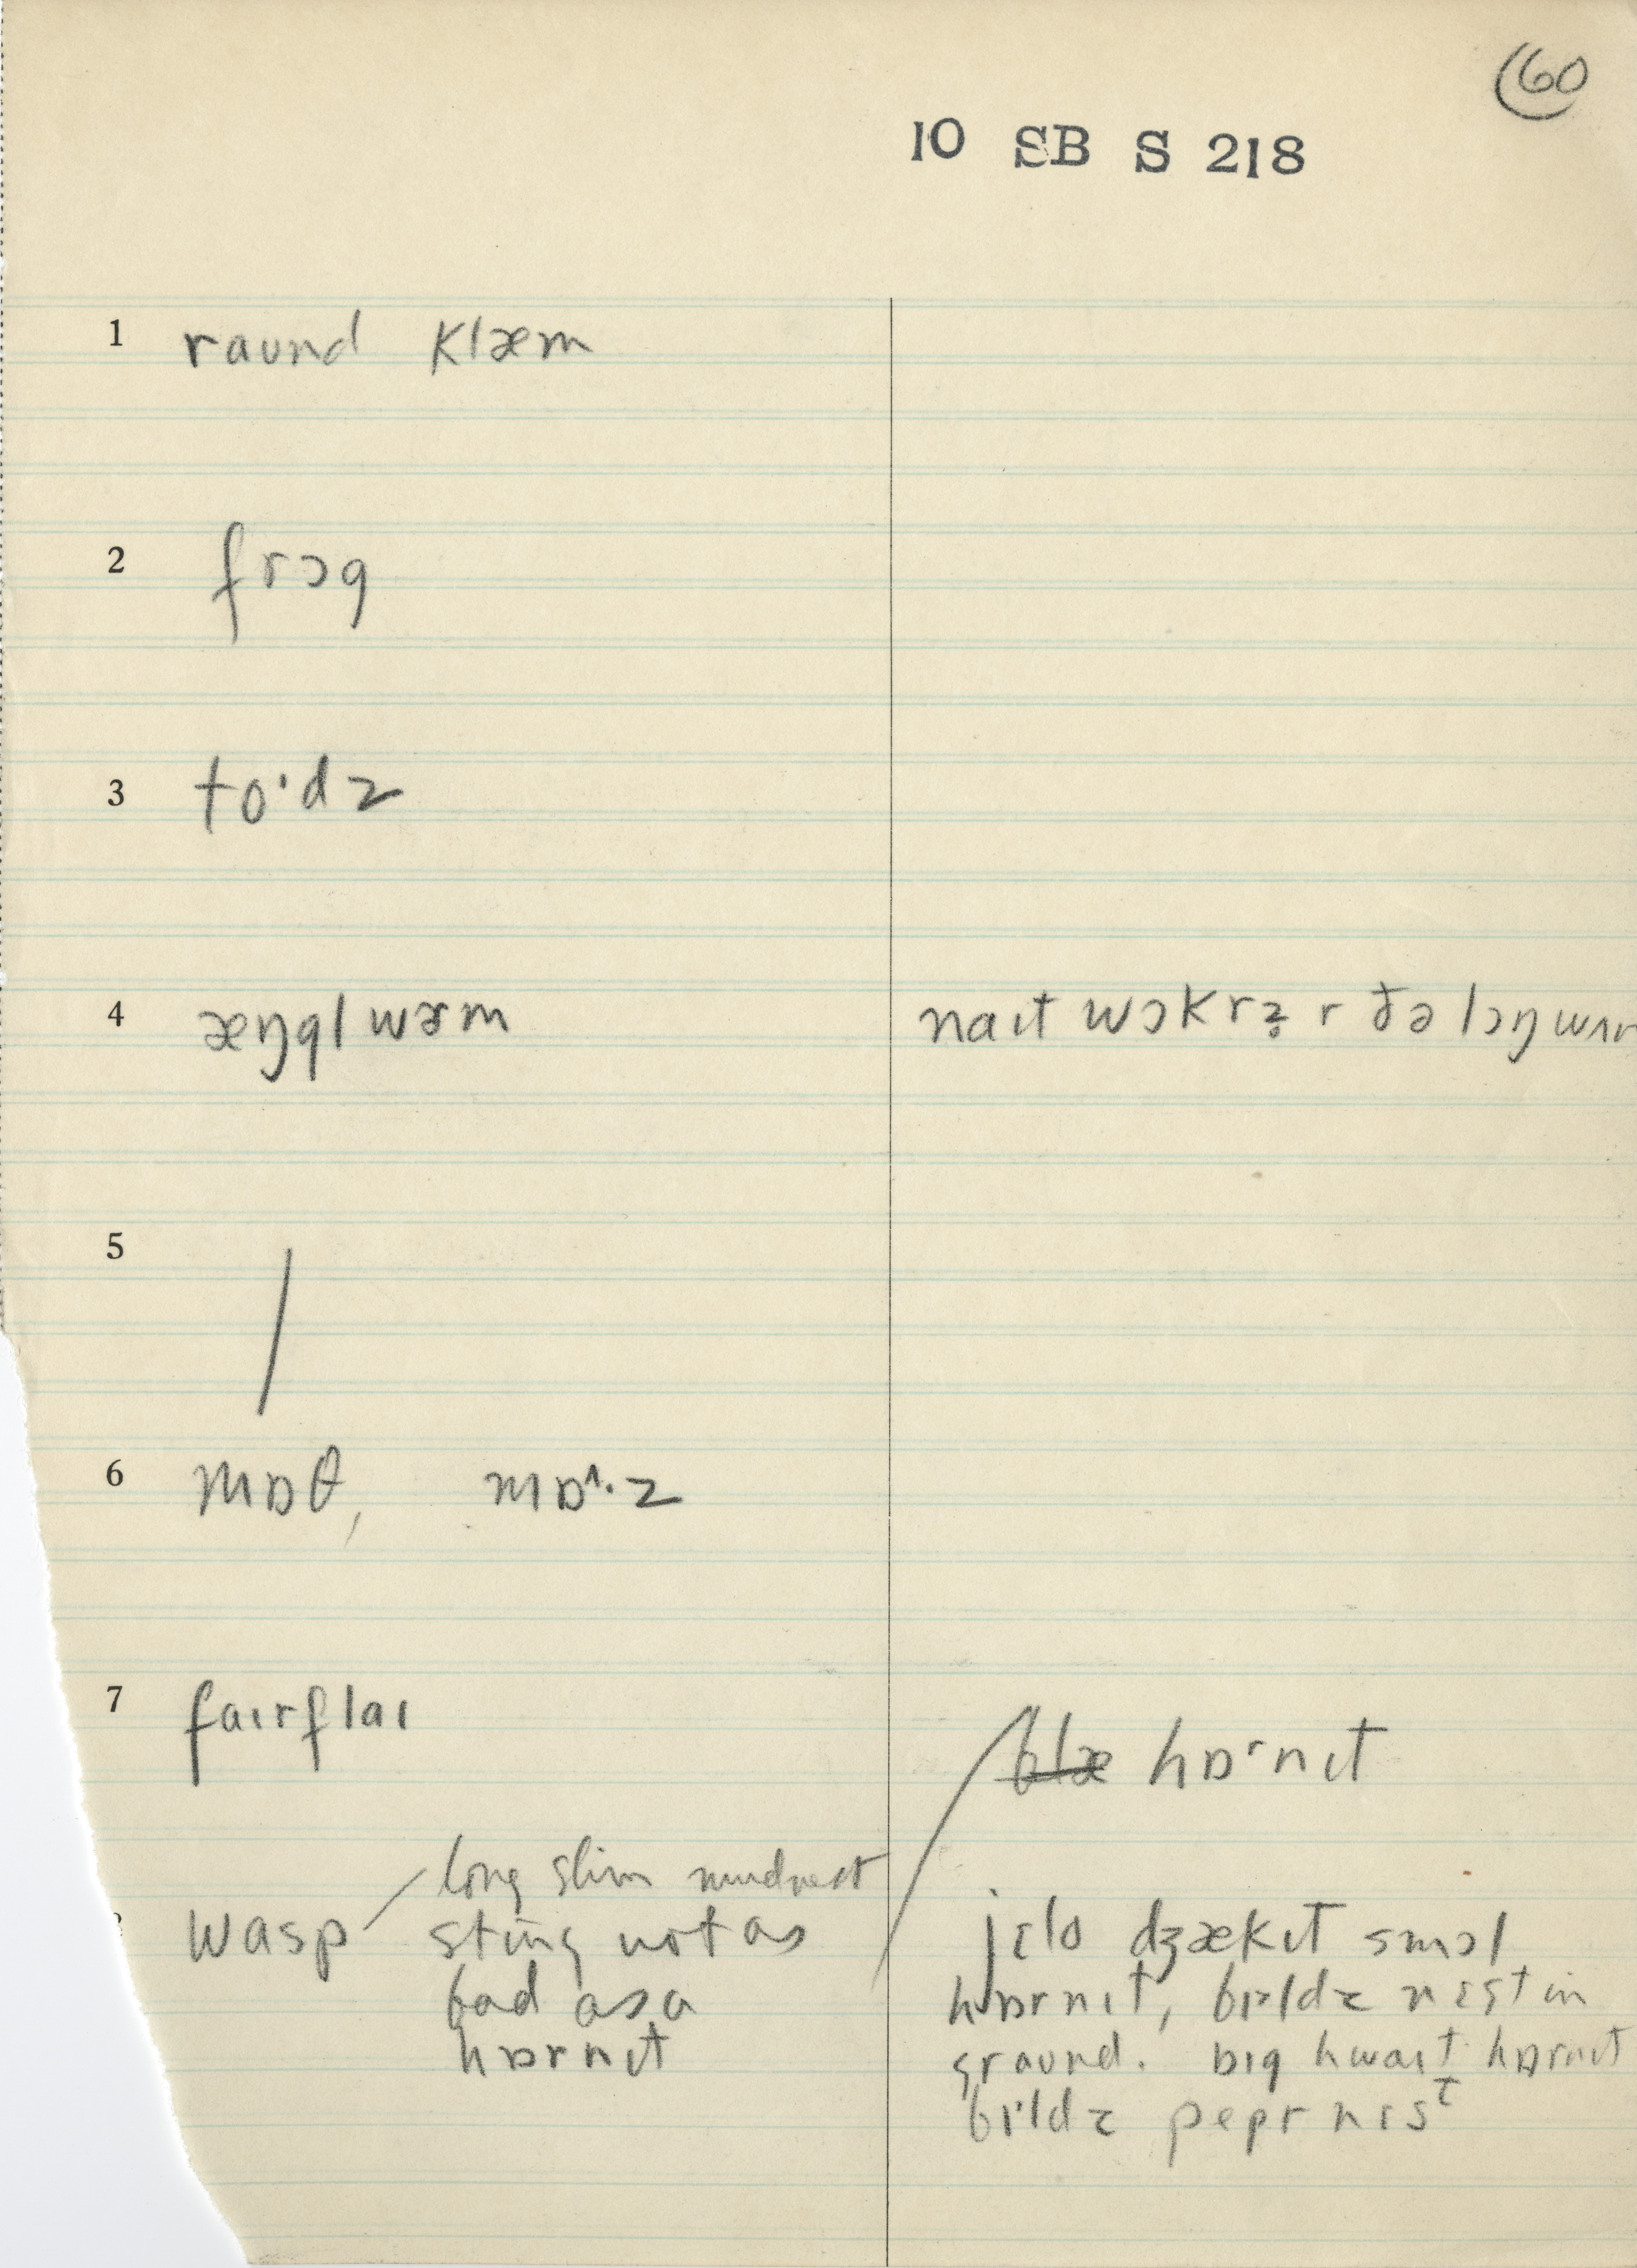 60
10 SB S 218
1 raʊnd klæm
2 frɔg
3 to·dz
4 æŋgl wɚm
naɪt wɔkrz̥ r ðə lɔŋ
5 /
6 mɒθ, mɒ^·z
7 faɪrflaɪ
blæ hɒ·rnɪt
long slim mudnest
wasp sting not as
bad as a
hɒrnɪt
jɛlo dʒækɪt smɔl
hɒrnɪt, bɪldz nɛst in
graʊnd. bɪg hwaɪt hɒrnɪt
bɪ·ldz pepr nɛst